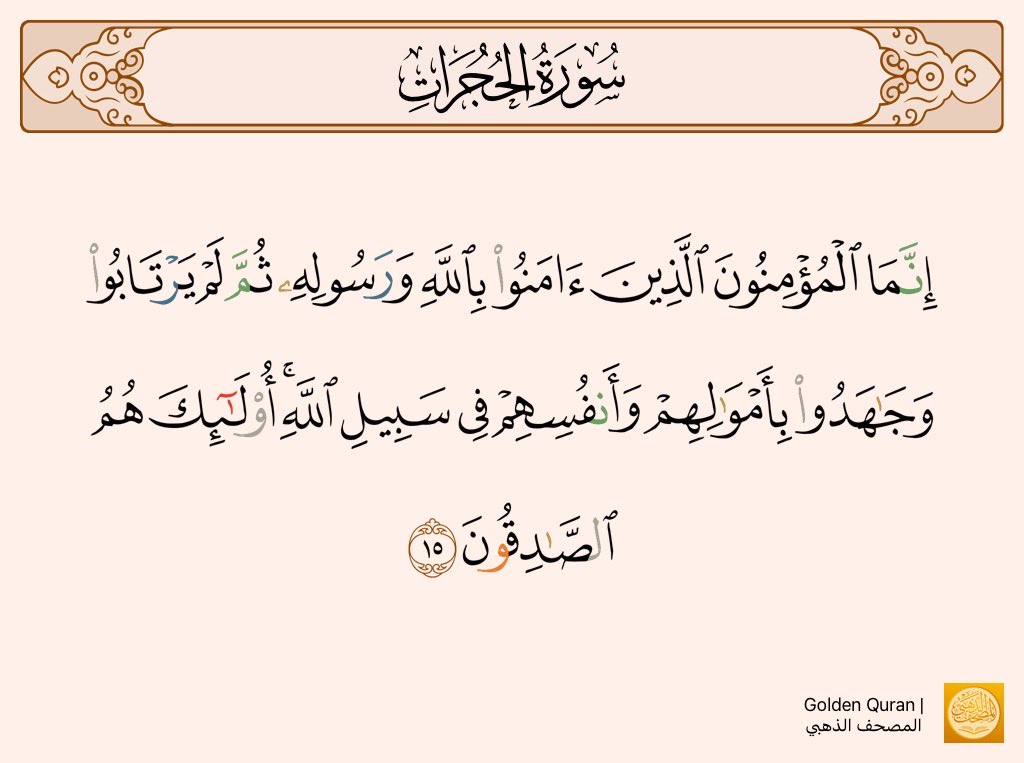 سُورَةُ الحُجُرَاتِ
إِنَّمَا ٱلْمُؤْمِنُونَ ٱلَّذِينَ ءَامَنُوا۟ بِٱللَّهِ وَرَسُولِهِۦ ثُمَّ لَمْ يَرْتَابُوا۟
وَجَـٰهَدُوا۟ بِأَمْوَٰلِهِمْ وَأَنفُسِهِمْ فِى سَبِيلِ ٱللَّهِ ۚ أُو۟لَـٰٓئِكَ هُمُ
ٱلصَّـٰدِقُونَ ١٥
Golden Quran |
المصحف الذهبي
المصحف الذهبي